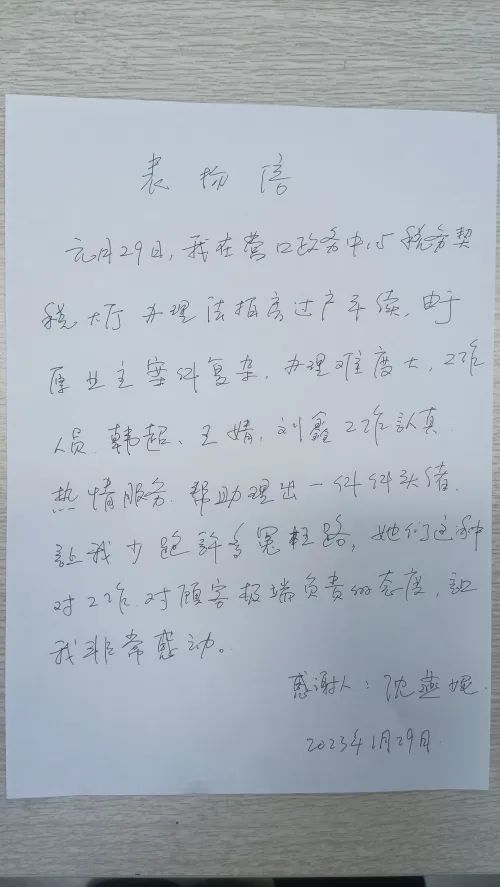 表扬信
元月29日,我在营口政务中心税务契
税大厅办理法拍房过户手续,由于
原业主案件复杂,办理难度大,工作
人员韩超、王婧、刘鑫工作認真
热情服务.帮助理出一件件头绪.
让我少跑許多冤枉路,她们这种
对工作.对顾客极端负责的态度,让
我非常感动。
感谢人:沈燕妮
2023年1月29日.